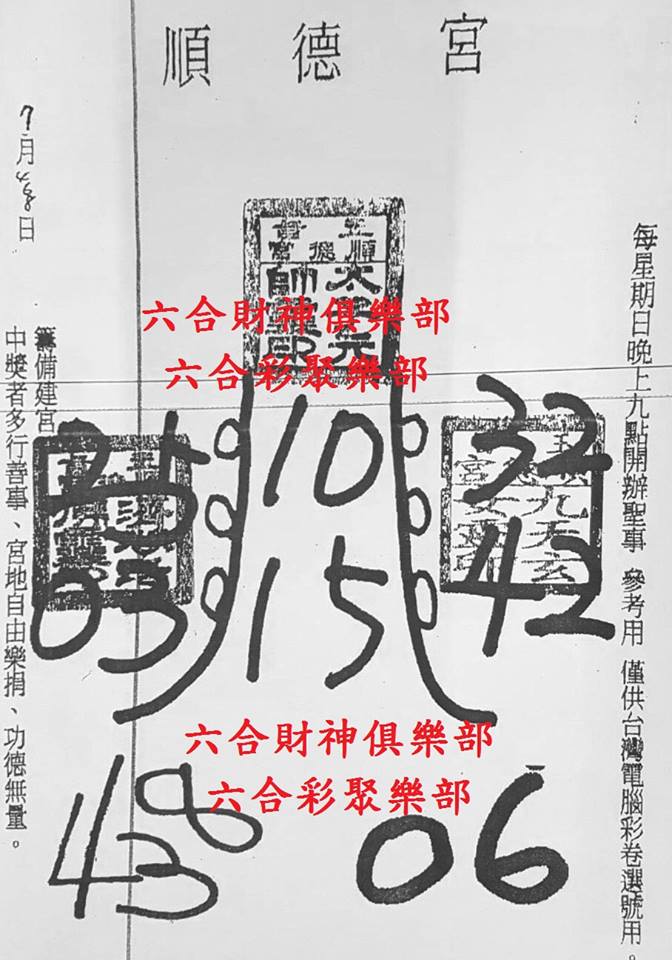 順德宮
每星期日晚上九點開辦聖事 參考用 僅供台灣電腦彩卷選號用。
順德宮
太子元帥
六合財神俱樂部
六合彩聚樂部
10
15
32
42
九天玄
25
03
六合財神俱樂部
六合彩聚樂部
438
06
7月日
籌備建宮
中獎者多行善事、宮地自由樂捐、功德無量。